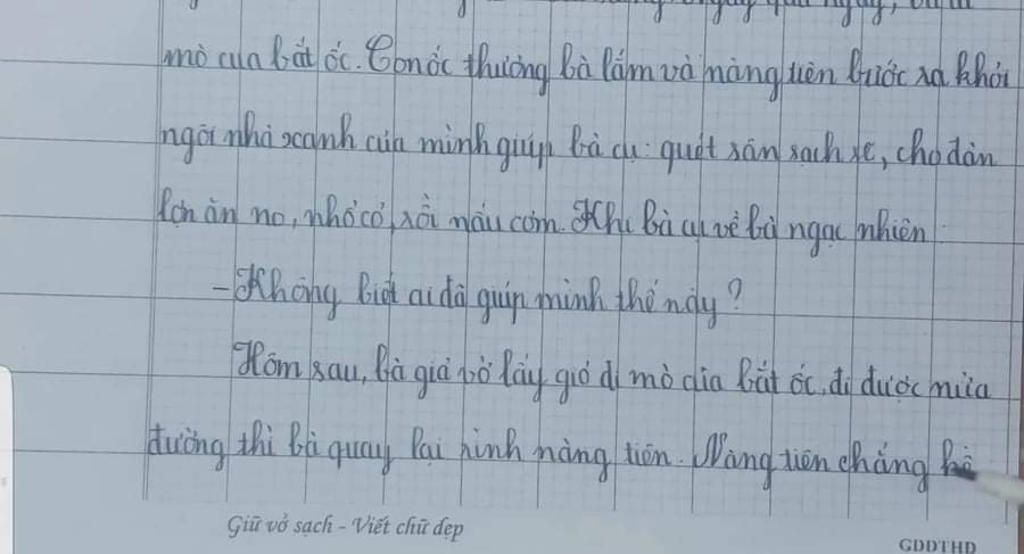 mò cua bắt ốc. Con ốc thương bà lắm và nàng tiên bước ra khỏi
ngôi nhà xanh của mình giúp bà cụ: quét sân sạch sẽ, cho đàn
lợn ăn no, nhổ cỏ, rồi nấu cơm. Khi bà cụ về bà ngạc nhiên
- Không biết ai đã giúp mình thế này?
Hôm sau, bà giả vờ lấy giỏ đi mò cua bắt ốc, đi được nửa
đường thì bà quay lại rình nàng tiên. Nàng tiên chẳng hề
Giữ vở sạch - Viết chữ đẹp
GDDTHD